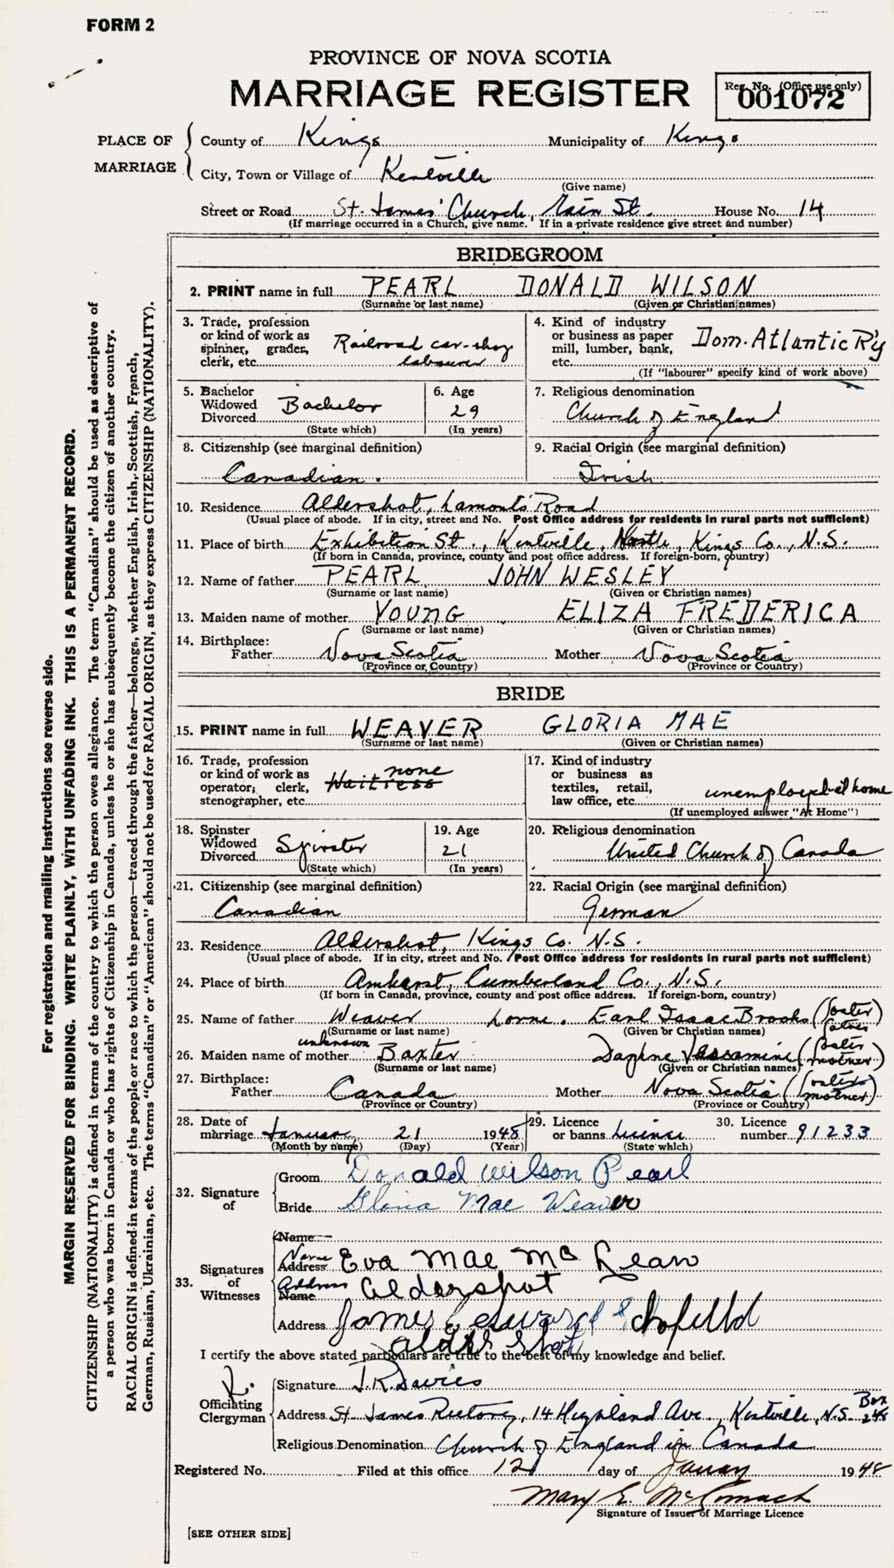 FORM 2
PROVINCE OF NOVA SCOTIA
MARRIAGE REGISTER
Reg. No. (Office use only)
001072
PLACE OF MARRIAGE
County of Kings Municipality of Kings
City, Town or Village of Kentville
(Give name)
Street or Road St. James' Church, Main St. House No. 14
(If marriage occurred in a Church, give name. If in a private residence give street and number)
BRIDEGROOM
2. PRINT name in full PEARL DONALD WILSON
(Surname or last name) (Given or Christian names)
3. Trade, profession or kind of work as spinner, grader, clerk, etc. Railroad car-shop labourer
4. Kind of industry or business as paper mill, lumber, bank, etc. Dom. Atlantic R'y
(If "labourer" specify kind of work above)
5. Bachelor Widowed Divorced Bachelor
(State which)
6. Age 29
(In years)
7. Religious denomination
Church of England
8. Citizenship (see marginal definition)
Canadian.
9. Racial Origin (see marginal definition)
Irish
10. Residence Aldershot, Lamonts Road
(Usual place of abode. If in city, street and No. Post Office address for residents in rural parts not sufficient)
11. Place of birth Exhibition St., Kentville, Kings Co., N.S.
(If born in Canada, province, county and post office address. If foreign-born, country)
12. Name of father PEARL JOHN WESLEY
(Surname or last name) (Given or Christian names)
13. Maiden name of mother YOUNG ELIZA FREDERICA
(Surname or last name) (Given or Christian names)
14. Birthplace:
Father Nova Scotia Mother Nova Scotia
(Province or Country) (Province or Country)
BRIDE
15. PRINT name in full WEAVER GLORIA MAE
(Surname or last name) (Given or Christian names)
16. Trade, profession or kind of work as operator, clerk, stenographer, etc. Waitress none
17. Kind of industry or business as textiles, retail, law office, etc. unemployed at home
(If unemployed answer "At Home")
18. Spinster Widowed Divorced Spinster
(State which)
19. Age 21
(In years)
20. Religious denomination
United Church of Canada
21. Citizenship (see marginal definition)
Canadian
22. Racial Origin (see marginal definition)
German
23. Residence Aldershot, Kings Co. N.S.
(Usual place of abode. If in city, street and No. Post Office address for residents in rural parts not sufficient)
24. Place of birth Amherst, Cumberland Co., N.S.
(If born in Canada, province, county and post office address. If foreign-born, country)
25. Name of father Weaver Lorne. Earl Isaac Brooks (foster father)
(Surname or last name) (Given or Christian names)
unknown
26. Maiden name of mother Baxter Daphne Jessamine (foster mother)
(Surname or last name) (Given or Christian names)
27. Birthplace:
Father Canada Mother Nova Scotia (foster mother)
(Province or Country) (Province or Country)
28. Date of marriage January 21 1948
(Month by name) (Day) (Year)
29. Licence or banns Licence
(State which)
30. Licence number 91233
32. Signature of
Groom Donald Wilson Pearl
Bride Gloria Mae Weaver
33. Signatures of Witnesses
Name
Name Address Eva Mae McLean
Address Name Aldershot
Address James Edward Schofield
Aldershot
I certify the above stated particulars are true to the best of my knowledge and belief.
Officiating Clergyman
Signature J.R. Davies
Address St. James Rectory, 14 Highland Ave., Kentville, N.S. Box 248
Religious Denomination Church of England in Canada
Registered No. Filed at this office 12 day of January 1948
Mary E. McCormack
Signature of Issuer of Marriage Licence
[SEE OTHER SIDE]
For registration and mailing instructions see reverse side.
MARGIN RESERVED FOR BINDING. WRITE PLAINLY, WITH UNFADING INK. THIS IS A PERMANENT RECORD.
CITIZENSHIP (NATIONALITY) is defined in terms of the country to which the person owes allegiance. The term "Canadian" should be used as descriptive of
a person who was born in Canada or who has rights of Citizenship in Canada, unless he or she has subsequently become the citizen of another country.
RACIAL ORIGIN is defined in terms of the people or race to which the person—traced through the father—belongs, whether English, Irish, Scottish, French,
German, Russian, Ukrainian, etc. The terms "Canadian" or "American" should not be used for RACIAL ORIGIN, as they express CITIZENSHIP (NATIONALITY).